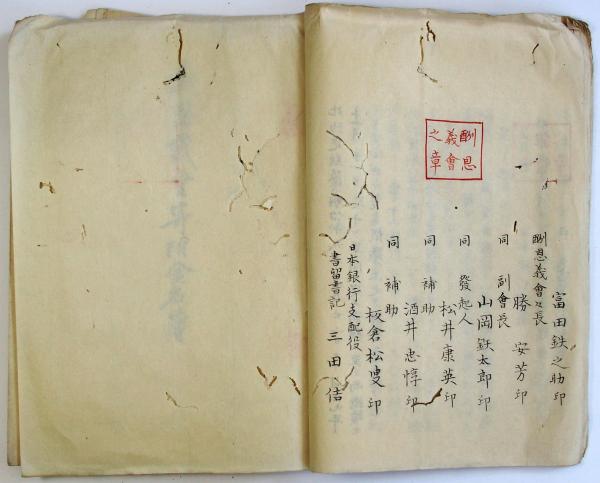 酬恩
義會
之章
富田鉄之助印
酬恩義會々長
勝 安芳印
同 副會長
山岡鉄太郎印
同 發起人
松井康英印
同 補助
酒井忠惇印
同 補助
板倉松叟印
日本銀行支配役
書留書記 三田佶